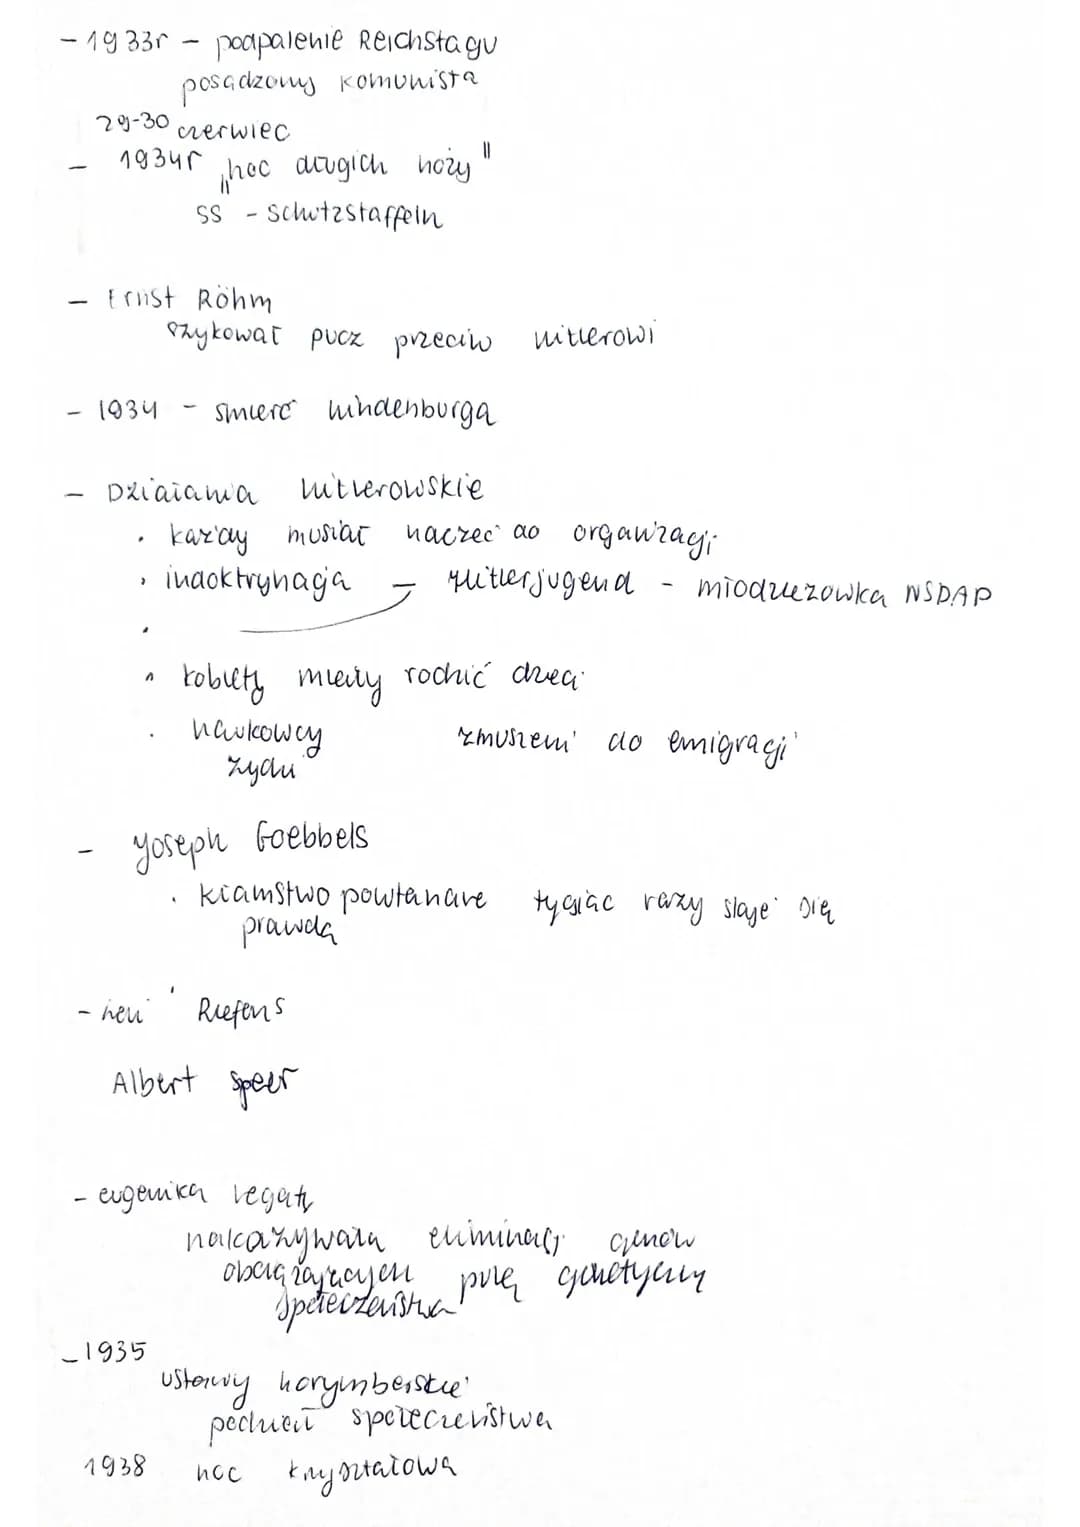 - 1933r - podpalenie Reichstagu
posądzony komunista
29-30 czerwiec
- 1934r „noc długich noży"
SS - Schutzstaffeln
- Ernst Röhm
szykował pucz przeciw hitlerowi
- 1934 - śmierć hindenburga
- Działania hitlerowskie
· każdy musiał należeć do organizacji
· indoktrynacja - Hitlerjugend - młodzieżówka NSDAP
·
· kobiety miały rodzić dzieci
· naukowcy zmuszeni do emigracji
żydzi
- Joseph Goebbels
· kłamstwo powtarzane tysiąc razy staje się
prawdą
- Riefens
Albert Speer
- eugenika negaty
nakazywała eliminacj genów
obciążających pulę genetyczną
społeczeństwa
- 1935
Ustawy norymberskie
podział społeczeństwa
1938 noc kryształowa